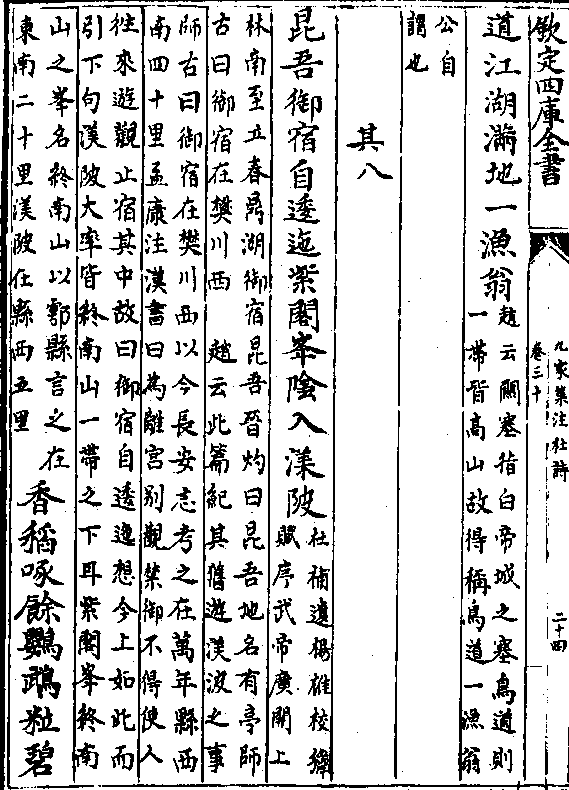 欽定四庫全書
九家集注杜詩
卷三十
二十四
道江湖滿地一漁翁
趙云關塞指白帝城之塞鳥道則
一帶皆高山故得稱鳥道一漁翁
公自
謂也
其八
昆吾御宿自逶迤紫閣峯陰入渼陂
杜補遺楊雄校獵
賦序武帝廣開上
林南至春鼎湖御宿昆吾晉灼曰昆吾地名有亭師
古曰御宿在樊川西 趙云此篇紀其舊遊渼陂之事
師古曰御宿在樊川西以今長安志考之在萬年縣西
南四十里孟康注漢書曰為離宮别觀禁御不得使人
往來遊觀止宿其中故曰御宿自逶迤想今上如此而
引下句渼陂大率皆終南山一帶之下耳紫閣峯終南
山之峯名終南山以鄠縣言之在
東南二十里渼陂在縣西五里
香稻啄餘鸚鵡粒碧